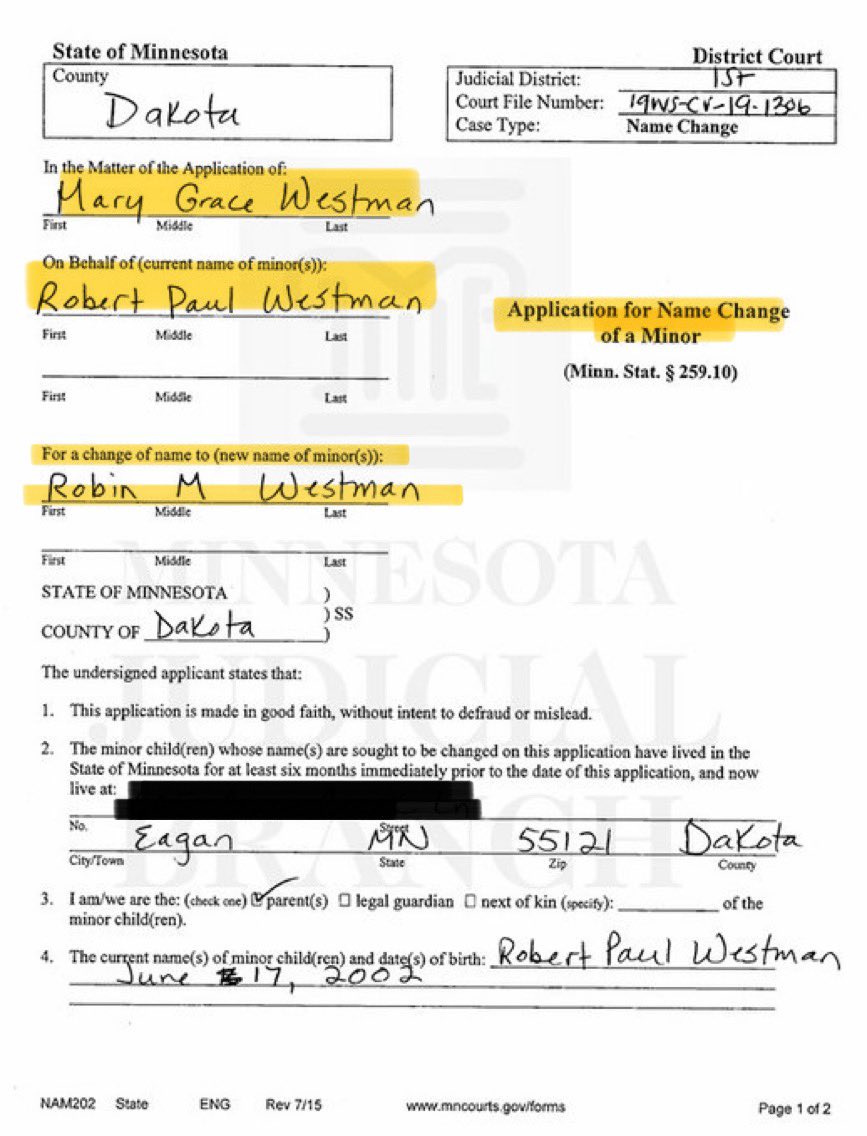 State of Minnesota
District Court
County
Dakota
Judicial District: 1st
Court File Number: 19WS-CV-19-1306
Case Type: Name Change
In the Matter of the Application of:
Mary Grace Westman
First Middle Last
On Behalf of (current name of minor(s)):
Robert Paul Westman
First Middle Last
First Middle Last
Application for Name Change
of a Minor
(Minn. Stat. § 259.10)
For a change of name to (new name of minor(s)):
Robin M Westman
First Middle Last
First Middle Last
STATE OF MINNESOTA )
) SS
COUNTY OF Dakota )
The undersigned applicant states that:
1. This application is made in good faith, without intent to defraud or mislead.
2. The minor child(ren) whose name(s) are sought to be changed on this application have lived in the
State of Minnesota for at least six months immediately prior to the date of this application, and now
live at:
No. Street
Eagan MN 55121 Dakota
City/Town State Zip County
3. I am/we are the: (check one) ☑ parent(s) ☐ legal guardian ☐ next of kin (specify): __________ of the
minor child(ren).
4. The current name(s) of minor child(ren) and date(s) of birth: Robert Paul Westman
June 17, 2002
NAM202 State ENG Rev 7/15 www.mncourts.gov/forms Page 1 of 2
MINNESOTA
JUDICIAL
BRANCH